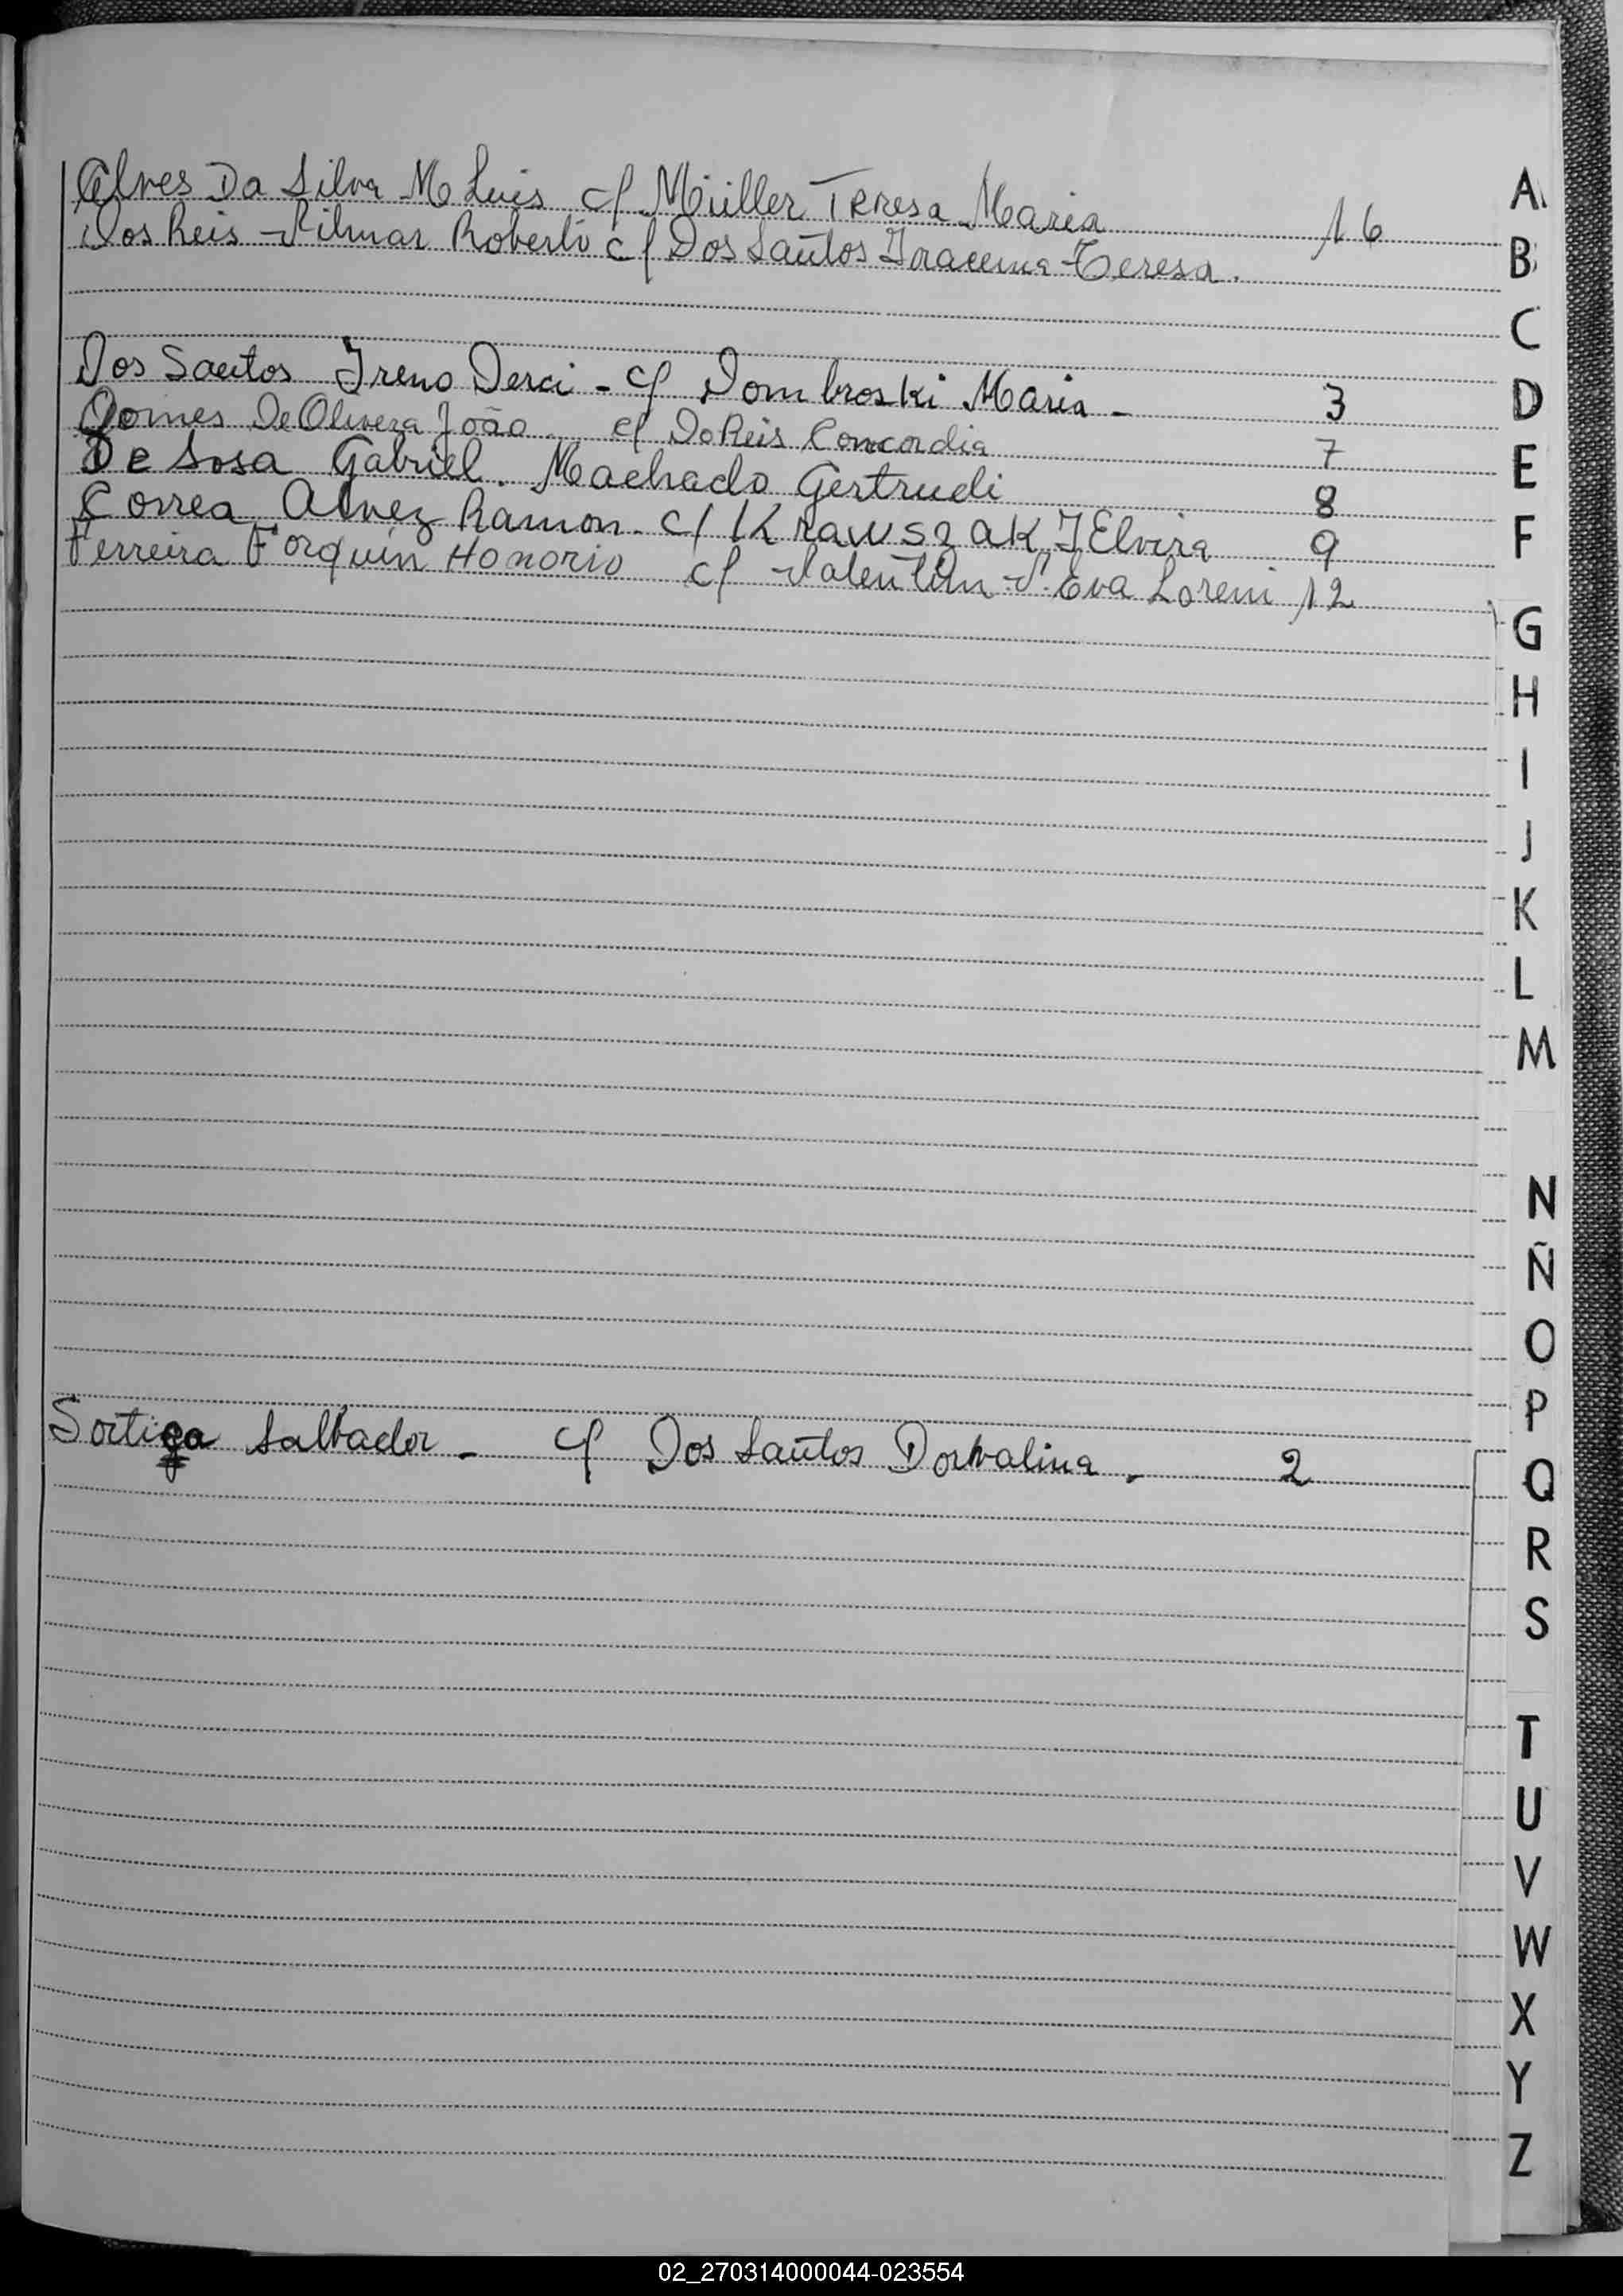 Alves Da Silva M Luis c/ Müller Teresa Maria 16
Dos Reis Vilmar Roberto c/ Dos Santos Iracema Teresa.
Dos Santos Ireno Derci - c/ Dombroski Maria - 3
Gomes De Olivera João c/ Do Reis Concordia 7
De Sosa Gabriel. Machado Gertrudi 8
Correa Alvez Ramon. c/ Krawszak, I Elvira 9
Ferreira Forquin Honorio c/ Valentin V. Eva Loreni 12
Sortiça Salvador - c/ Dos Santos Dorvalina. 2
A
B
C
D
E
F
G
H
I
J
K
L
M
N
Ñ
O
P
Q
R
S
T
U
V
W
X
Y
Z
02_270314000044-023554